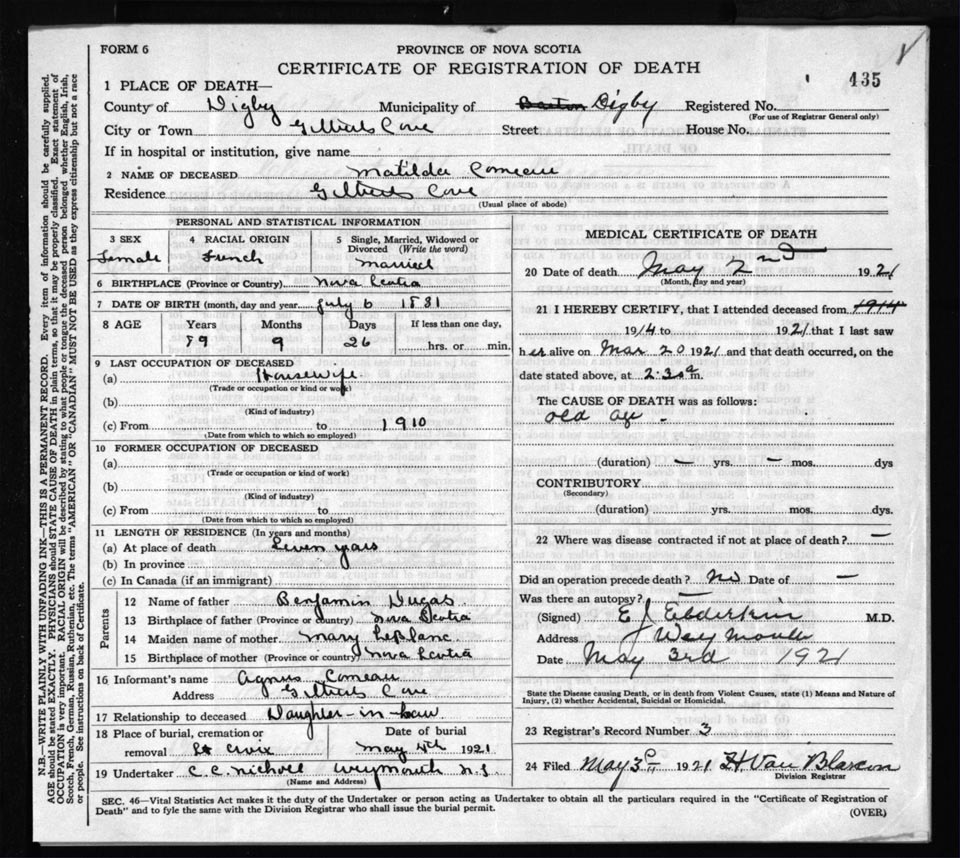 FORM 6
PROVINCE OF NOVA SCOTIA
CERTIFICATE OF REGISTRATION OF DEATH
435
1 PLACE OF DEATH—
County of Digby Municipality of Barton Digby Registered No.
(For use of Registrar General only)
City or Town Gilberts Cove Street House No.
If in hospital or institution, give name
2 NAME OF DECEASED Matilda Comeau
Residence Gilberts Cove
(Usual place of abode)
PERSONAL AND STATISTICAL INFORMATION
3 SEX 4 RACIAL ORIGIN 5 Single, Married, Widowed or Divorced (Write the word)
Female French Married
6 BIRTHPLACE (Province or Country) Nova Scotia
7 DATE OF BIRTH (month, day and year) July 6 1831
8 AGE Years Months Days If less than one day,
89 9 26 hrs. or min.
9 LAST OCCUPATION OF DECEASED
(a) Housewife
(Trade or occupation or kind of work)
(b)
(Kind of industry)
(c) From to 1910
(Date from which to which so employed)
10 FORMER OCCUPATION OF DECEASED
(a)
(Trade or occupation or kind of work)
(b)
(Kind of industry)
(c) From to
(Date from which to which so employed)
11 LENGTH OF RESIDENCE (In years and months)
(a) At place of death Seven years
(b) In province
(c) In Canada (if an immigrant)
Parents
12 Name of father Benjamin Dugas
13 Birthplace of father (Province or country) Nova Scotia
14 Maiden name of mother Mary LeBlanc
15 Birthplace of mother (Province or country) Nova Scotia
16 Informant's name Agnus Comeau
Address Gilberts Cove
17 Relationship to deceased Daughter-in-law
18 Place of burial, cremation or removal St Croix Date of burial May 4th 1921
19 Undertaker C. C. Nicholl Weymouth N.S
(Name and Address)
MEDICAL CERTIFICATE OF DEATH
20 Date of death May 2nd 1921
(Month, day and year)
21 I HEREBY CERTIFY, that I attended deceased from 1914
1914 to 1921 that I last saw
her alive on Mar 20 1921 and that death occurred, on the
date stated above, at 2.30 a m.
The CAUSE OF DEATH was as follows:
old age.
(duration) — yrs. — mos. dys
CONTRIBUTORY
(Secondary)
(duration) yrs. mos. dys.
22 Where was disease contracted if not at place of death? —
Did an operation precede death? No Date of —
Was there an autopsy? —
(Signed) E J Elderkin M.D.
Address Weymouth
Date May 3rd 1921
State the Disease causing Death, or in death from Violent Causes, state (1) Means and Nature of
Injury, (2) whether Accidental, Suicidal or Homicidal.
23 Registrar's Record Number 3
24 Filed May 3 1921 H Van Blarcon
Division Registrar
SEC. 46—Vital Statistics Act makes it the duty of the Undertaker or person acting as Undertaker to obtain all the particulars required in the "Certificate of Registration of
Death" and to fyle the same with the Division Registrar who shall issue the burial permit.
(OVER)
N.B.—WRITE PLAINLY WITH UNFADING INK—THIS IS A PERMANENT RECORD. Every item of information should be carefully supplied.
AGE should be stated EXACTLY. PHYSICIANS should STATE CAUSE OF DEATH in plain terms, so that it may be properly classified. Exact statement of
OCCUPATION is very important. RACIAL ORIGIN will be described by stating to what people or tongue the deceased person belonged whether English, Irish,
Scotch, French, German, Russian, Ruthenian, etc. The terms "AMERICAN" OR "CANADIAN" MUST NOT BE USED as they express citizenship but not a race
or people. See instructions on back of Certificate.